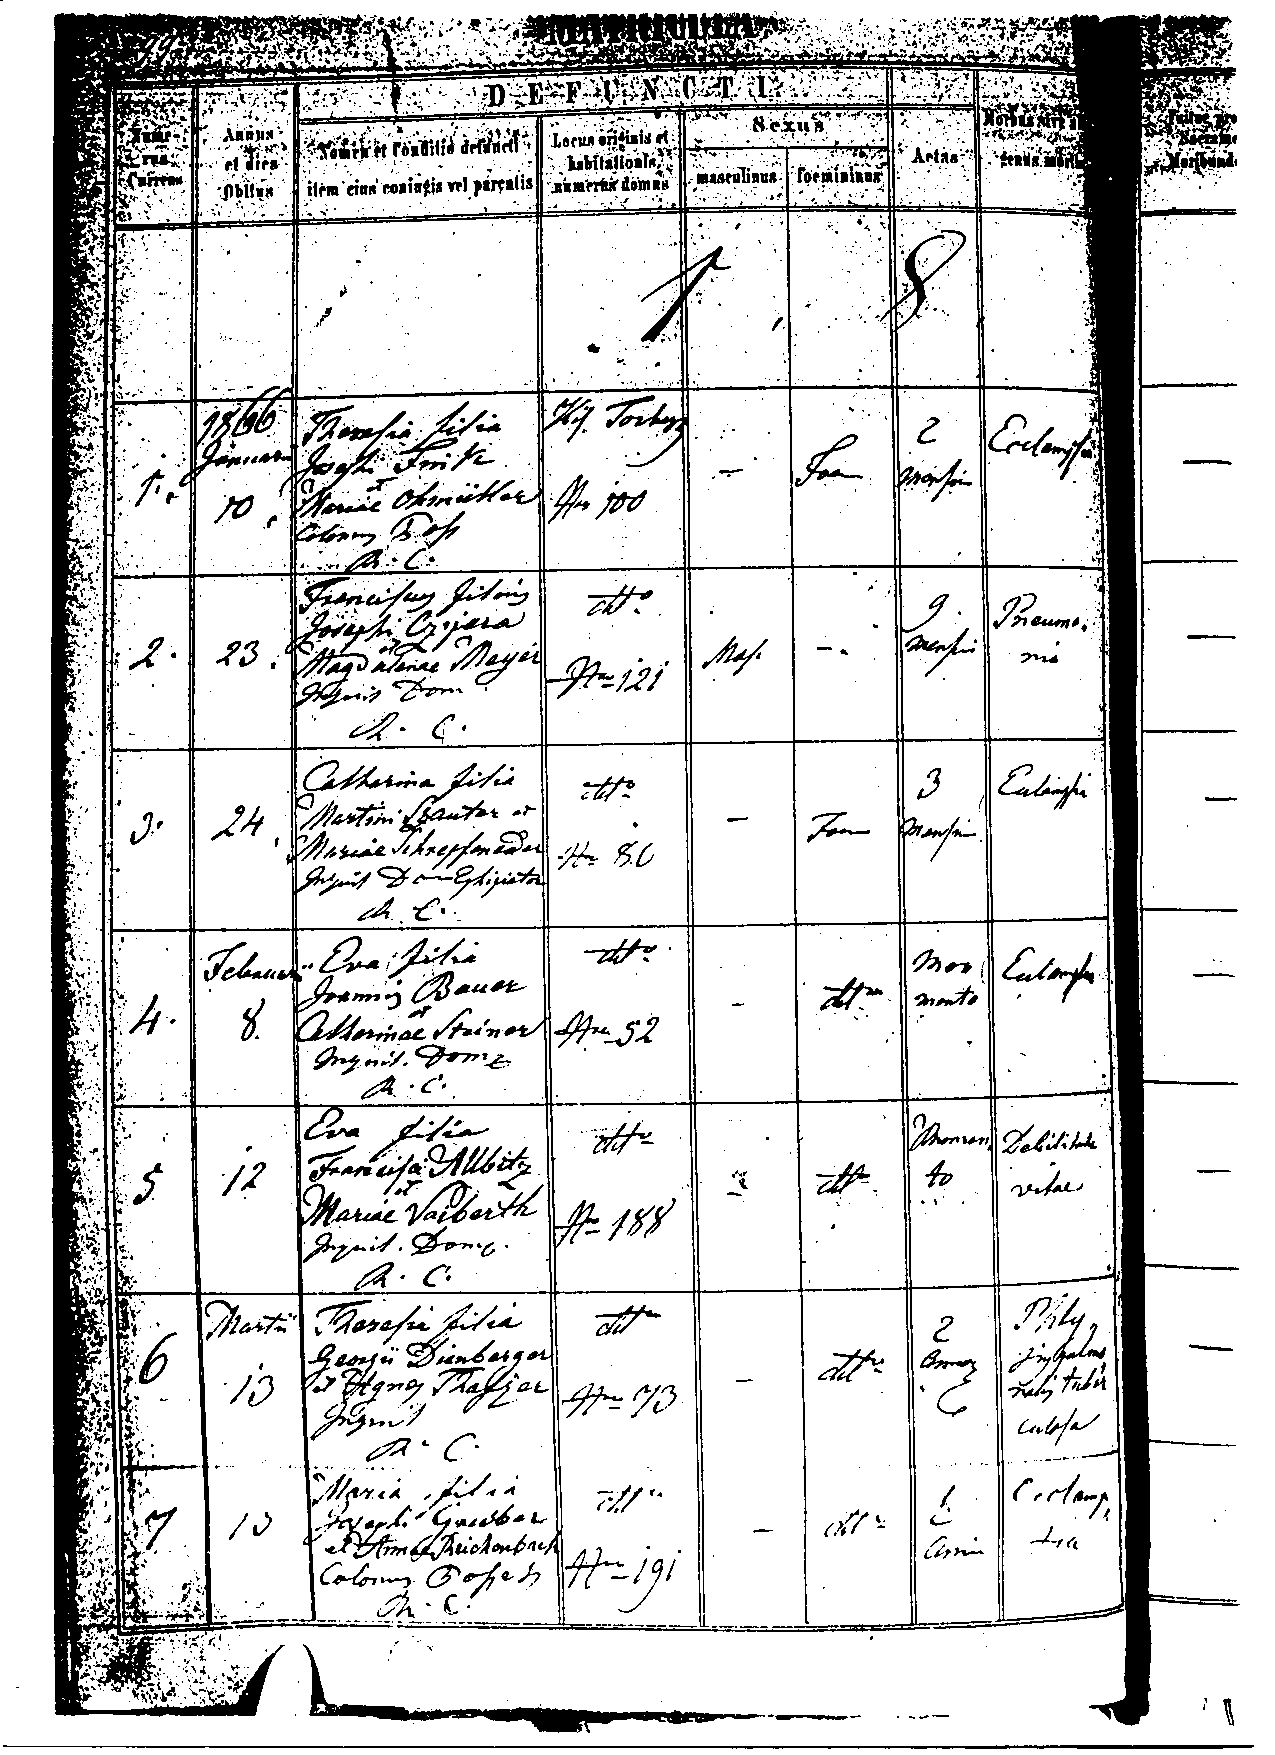 MATRICULA
99
DEFUNCTI
Nume-
rus
Currens
Annus
et dies
Obitus
Nomen et Conditio defuncti
item eius coniugis vel parentis
Locus originis et
habitationis,
numerus domus
Sexus
masculinus
foemininus
Aetas
Morbus sive
genus mortis
1 8
1866
Januarii
1.
10
Theresia filia
Josephi Fink
et
Mariae Ohmüller
Colonus Poss
R. C.
Kis Torbágy
Nro 100
—
Foem
2
mensium
Ecclampsia
—
2.
23.
Franciscus filius
Josephi
et
Magdalenae Mayer
Inquil Dom
R. C.
dtto
Nro 121
Mas.
—.
9.
mensium
Pneumo-
nia
—
3.
24
Catharina filia
Martini Krauter et
Mariae
Inquil Dom
R. C.
dtto
Nro 86
—
Foem
3
mensium
Eclampsia
—
4.
Februarii
8.
Eva filia
Joannis Bauer
et
Catharinae Steiner
Inquil. Dom
R. C.
dtto
Nro 52
—
dtto
Mo
mento
Eclampsia
—
5
12
Eva filia
Francisci Albitz
et
Mariae Vaiberth
Inquil. Dom
R. C.
dtto
Nro 188
—
dtto
Momen
to
Debilitate
vitae
—
6
Martii
13
Theresia filia
Georgii Dienberger
et Agnes
Inquil
R. C.
dtto
Nro 73
—
dtto
2
Annor
culosa
—
7
13
Maria filia
Josephi
et Annae Reichenbach
Colonus
R. C.
dtto
Nro 191
—
dtto
1
Anni
Ecclamp
sia
—